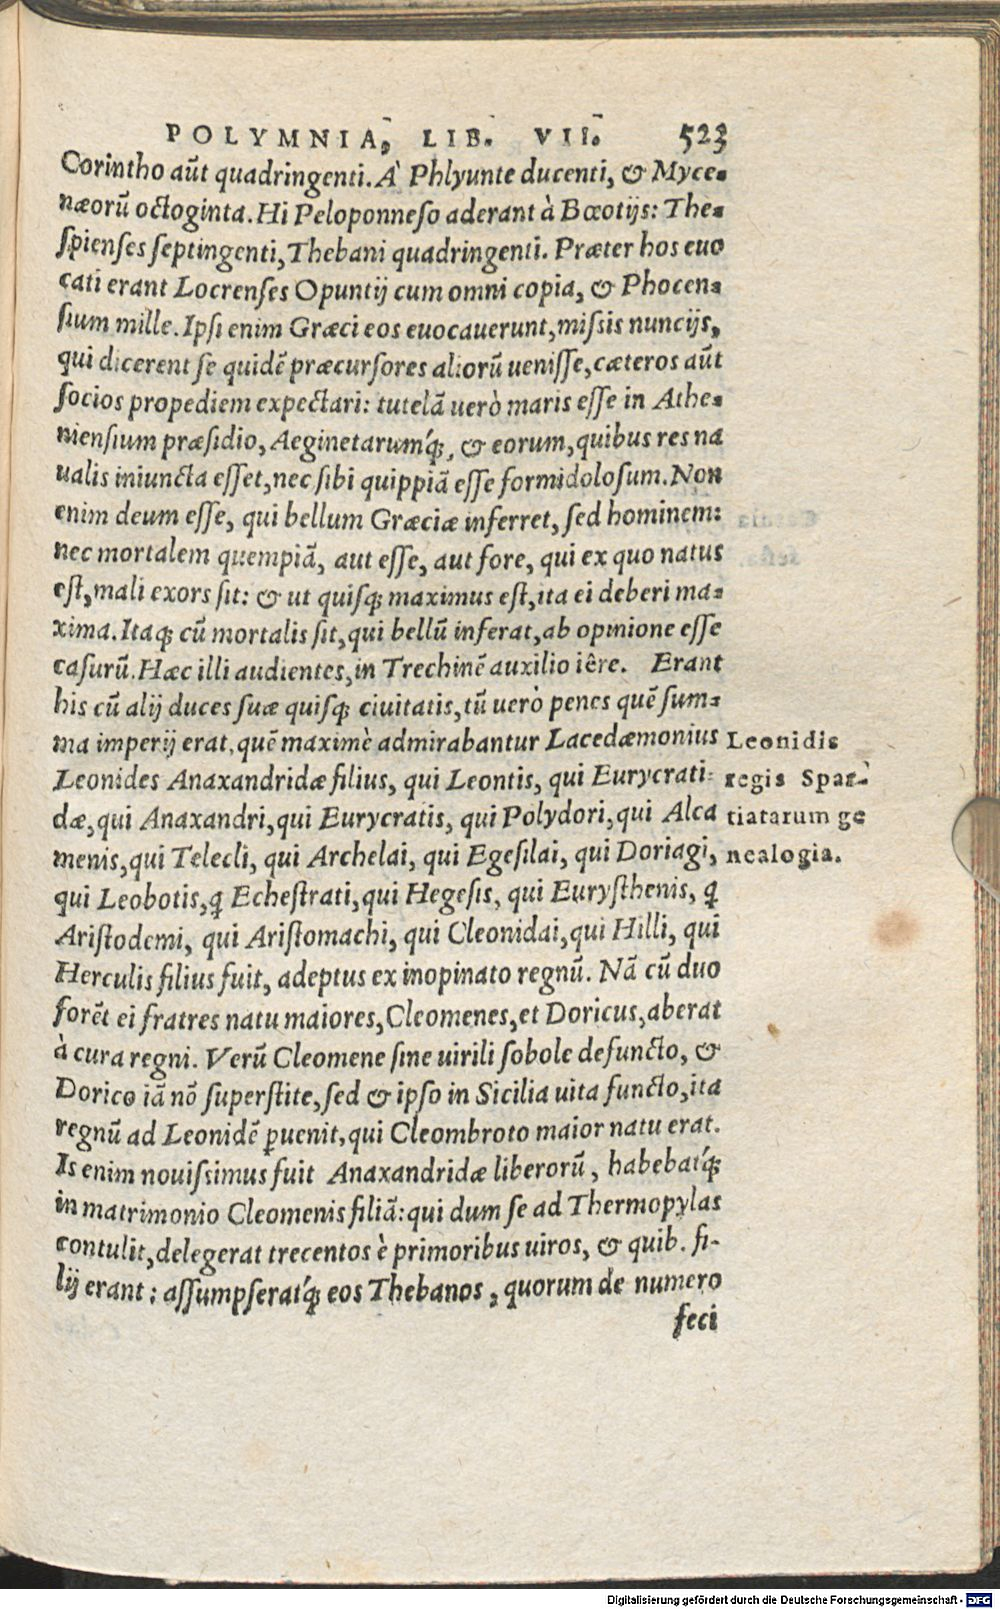 POLYMNIA, LIB. VII. 523
Corintho aūt quadringenti. À Phlyunte ducenti, & Myce-
næorū octoginta. Hi Peloponneso aderant à Bœotijs: The-
ſpienſes ſeptingenti, Thebani quadringenti. Præter hos euo
cati erant Locrenſes Opuntij cum omni copia, & Phocen-
ſium mille. Ipſi enim Græci eos euocauerunt, miſsis nuncijs,
qui dicerent ſe quidē præcurſores aliorū ueniſſe, cæteros aūt
ſocios propediem expectari: tutelā uerò maris eſſe in Athe-
nienſium præſidio, Aeginetarumq́;, & eorum, quibus res na
ualis iniuncta eſſet, nec ſibi quippiā eſſe formidoloſum. Non
enim deum eſſe, qui bellum Græciæ inferret, ſed hominem:
nec mortalem quempiā, aut eſſe, aut fore, qui ex quo natus
eſt, mali exors ſit: & ut quiſq; maximus eſt, ita ei deberi ma-
xima. Itaq; cū mortalis ſit, qui bellū inferat, ab opinione eſſe
caſurū. Hæc illi audientes, in Trechinē auxilio iêre. Erant
his cū alij duces ſuæ quiſq; ciuitatis, tū uerò penes quē ſum-
ma imperij erat, quē maximè admirabantur Lacedæmonius
Leonides Anaxandridæ filius, qui Leontis, qui Eurycrati-
dæ, qui Anaxandri, qui Eurycratis, qui Polydori, qui Alca
menis, qui Telecli, qui Archelai, qui Egeſilai, qui Doriagi,
qui Leobotis, q̄ Echeſtrati, qui Hegeſis, qui Euryſthenis, q̄
Ariſtodemi, qui Ariſtomachi, qui Cleonidai, qui Hilli, qui
Herculis filius fuit, adeptus ex inopinato regnū. Nā cū duo
forēt ei fratres natu maiores, Cleomenes, et Doricus, aberat
à cura regni. Verū Cleomene ſine uirili ſobole defuncto, &
Dorico iā nō ſuperſtite, ſed & ipſo in Sicilia uita functo, ita
regnū ad Leonidē ꝑuenit, qui Cleombroto maior natu erat.
Is enim nouiſsimus fuit Anaxandridæ liberorū, habebatq́;
in matrimonio Cleomenis filiā: qui dum ſe ad Thermopylas
contulit, delegerat trecentos è primoribus uiros, & quib. fi-
lij erant: aſſumpſeratq́; eos Thebanos, quorum de numero
feci
Leonidis
regis Spar-
tiatarum ge
nealogia.
Digitalisierung gefördert durch die Deutsche Forschungsgemeinschaft - DFG